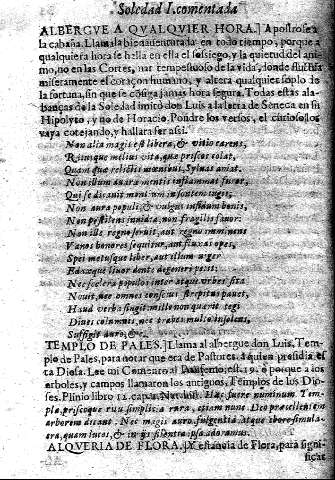 Soledad I. comentada
ALBERGVE A QVALQVIER HORA.] Apostrofe a
la cabaña. Llamala bienauenturada en todo tiempo, porque a
qualquiera hora se halla en ella el sosiego, y la quietud del ani-
mo, no en las Cortes, mar tempestuoso de la vida, donde fluctua
miseramente el coraçon humano, y altera qualquier soplo de
la fortuna, sin que se consiga jamas hora segura. Todas estas ala-
banças de la Soledad imitó don Luis a la letra de Seneca en su
Hipolyto, y no de Horacio. Pondre los versos, el curioso los
vaya cotejando, y hallara ser assi.
Non alia magis est libera, & vitio carens,
Ritúmque melius vita, quæ priscos colat,
Quam quæ relictis mœnibus, syluas amat.
Non illum auaræ mentis inflammat furor,
Qui se dicauit montium insontem iugis,
Non aura populi, & vulgus infidum bonis,
Non pestilens inuidia, non fragilis fauor:
Non ille regno seruit, aut regno imminens
Vanos honores sequitur, aut fluxas opes,
Spei metusque liber, aut illum niger
Edaxque liuor dente degeneri petit:
Nec scelera populos inter atque vrbes sita
Nouit, nec omnes conscius strepitus pauet,
Haud verba fingit: mille non quærit tegi
Diues columnis, nec trabes multo insolens,
Suffigit auro, &c.
TEMPLO DE PALES.] Llama al albergue don Luis, Tem-
plo de Pales, para notar que era de Pastores, à quien presidia es-
ta Diosa. Lee mi Comento al Polifemo, est. 19. o porque a los
arboles, y campos llamaron los antiguos, Templos de los Dio-
ses. Plinio libro 12. cap. 1. Nat. hist. Hæc fuere numinum Tem-
pla, priscoque ritu simplicia rura, etiam nunc Deo præcellentem
arborem dicant. Nec magis auro fulgentia atque ebore simula-
cra, quam lucos, & in ijs silentia ipsa adoramus.
ALQVERIA DE FLORA.] Y estancia de Flora, para signi-
ficar